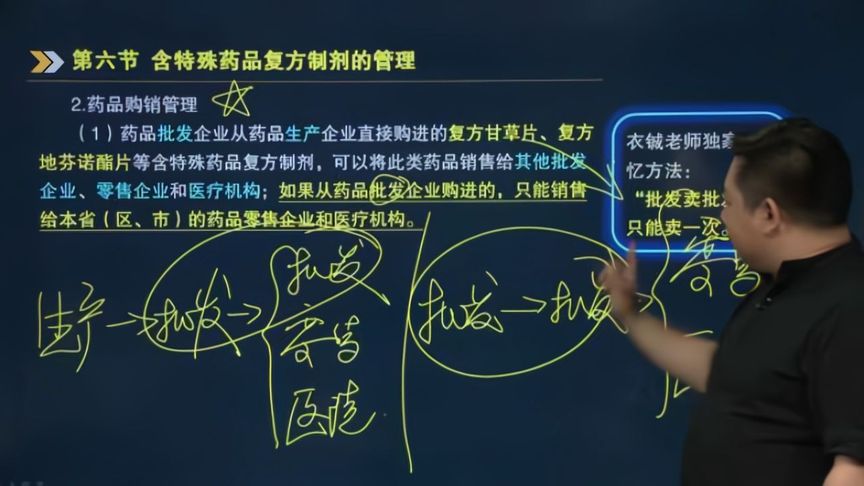 第六节 含特殊药品复方制剂的管理
2.药品购销管理
（1）药品批发企业从药品生产企业直接购进的复方甘草片、复方
地芬诺酯片等含特殊药品复方制剂，可以将此类药品销售给其他批发
企业、零售企业和医疗机构；如果从药品批发企业购进的，只能销售
给本省（区、市）的药品零售企业和医疗机构。
衣铖老师独家
忆方法：
“批发卖批
只能卖一次。
生产→批发→
批发
零售
医院
批发→批发
零售